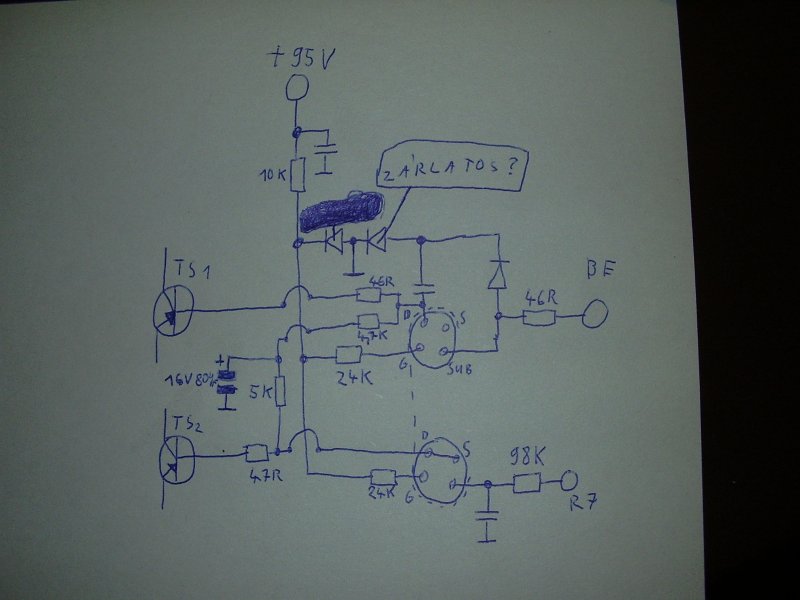 +95V
10K
ZÁRLATOS?
TS1
46R
BE
46R
D
S
4,7K
G
SUB
24K
+
5K
TS2
47R
D
S
98K
24K
G
R7